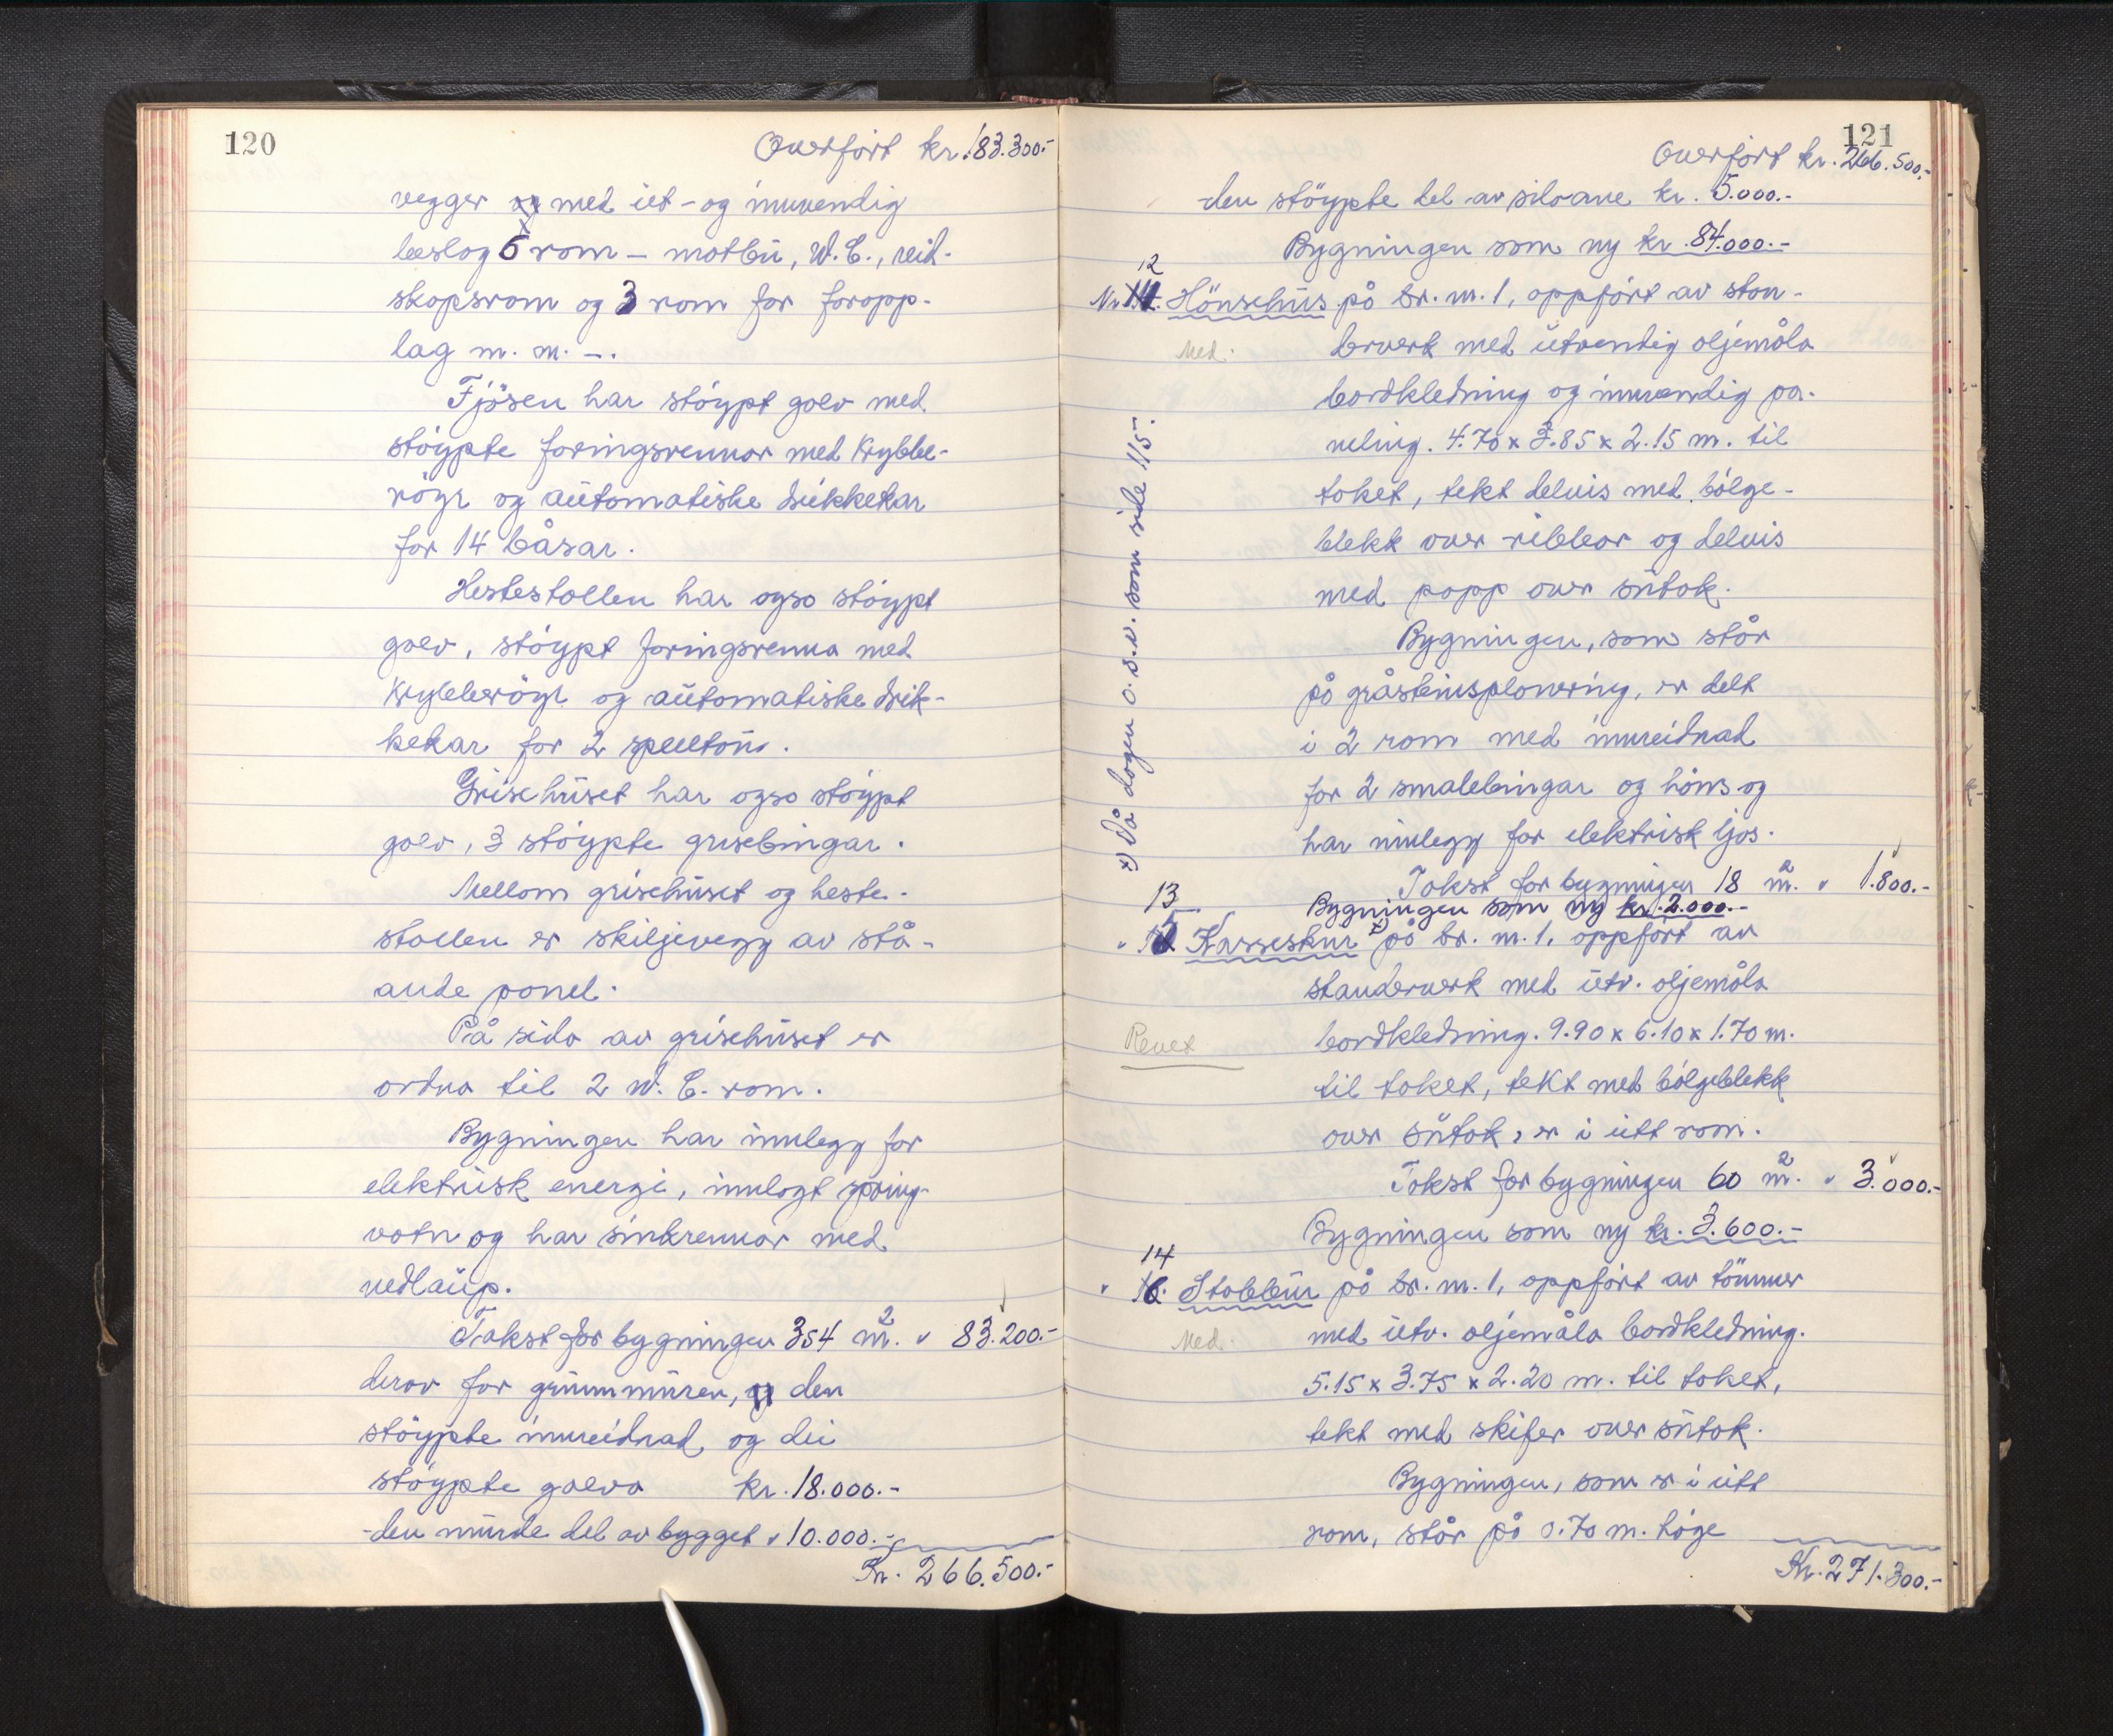 120
Overført kr. 183.300.-
vegger og med ut- og innvendig
beslag 6 rom – matbu, W.C., reid-
skapsrom og 3 rom for foropp-
lag m. m. –.
Fjösen har stöypt golv med
stöypte foringsrennor med krybbe-
röyr og automatiske drikkekar
for 14 båsar.
Hestestallen har ogso stöypt
golv, stöypt foringsrenna med
krybberöyr og automatiske drik-
kekar for 2 spelltau.
Grisehuset har ogso stöypt
golv, 3 stöypte grisebingar.
Mellom grisehuset og heste-
stallen er skiljevegg av stå-
ande panel.
På sida av grisehuset er
ordna til 2 W.C. rom.
Bygningen har innlegg for
elektrisk energi, innlagt spring-
vatn og har sinkrennor med
nedlaup.
Takst for bygningen 354 m². " 83.200.-
derav for grunnmuren, den
stöypte innreidnad og dei
stöypte golva kr. 18.000.-
den murde del av bygget " 10.000.-
Kr. 266.500.-
121
Overført kr. 266.500.-
den stöypte del av siloane kr. 5.000.-
Bygningen som ny kr. 84.000.-
12
Nr. 14. Hönsehus på br. nr. 1, oppfört av stan-
Med.
derverk med utvendig oljemåla
bordkledning og innvendig pa-
neling. 4.70 x 3.85 x 2.15 m. til
taket, tekt delvis med bölge-
blekk over ribbor og delvis
med papp over sutak.
Bygningen, som står
på gråsteinsplanering, er delt
i 2 rom med innreidnad
for 2 smalebingar og höns og
har innlegg for elektrisk ljos.
Takst for bygningen 18 m². " 1.800.-
Bygningen som ny kr. 2.000.-
13
" 15 Karreskur x) på br. nr. 1, oppfört av
standerverk med utv. oljemåla
Revet
bordkledning. 9.90 x 6.10 x 1.70 m.
til taket, tekt med bölgeblekk
over sutak, er i eitt rom.
Takst for bygningen 60 m². " 3.000.-
Bygningen som ny kr. 3.600.-
14
" 16. Stabbur på br. nr. 1, oppfört av tömmer
Med.
med utv. oljemåla bordkledning.
5.15 x 3.75 x 2.20 m. til taket,
tekt med skifer over sutak.
Bygningen, som er i eitt
rom, står på 0.70 m. höge
Kr. 271.300.-
x) Då dagen o.s.v. som side 115.